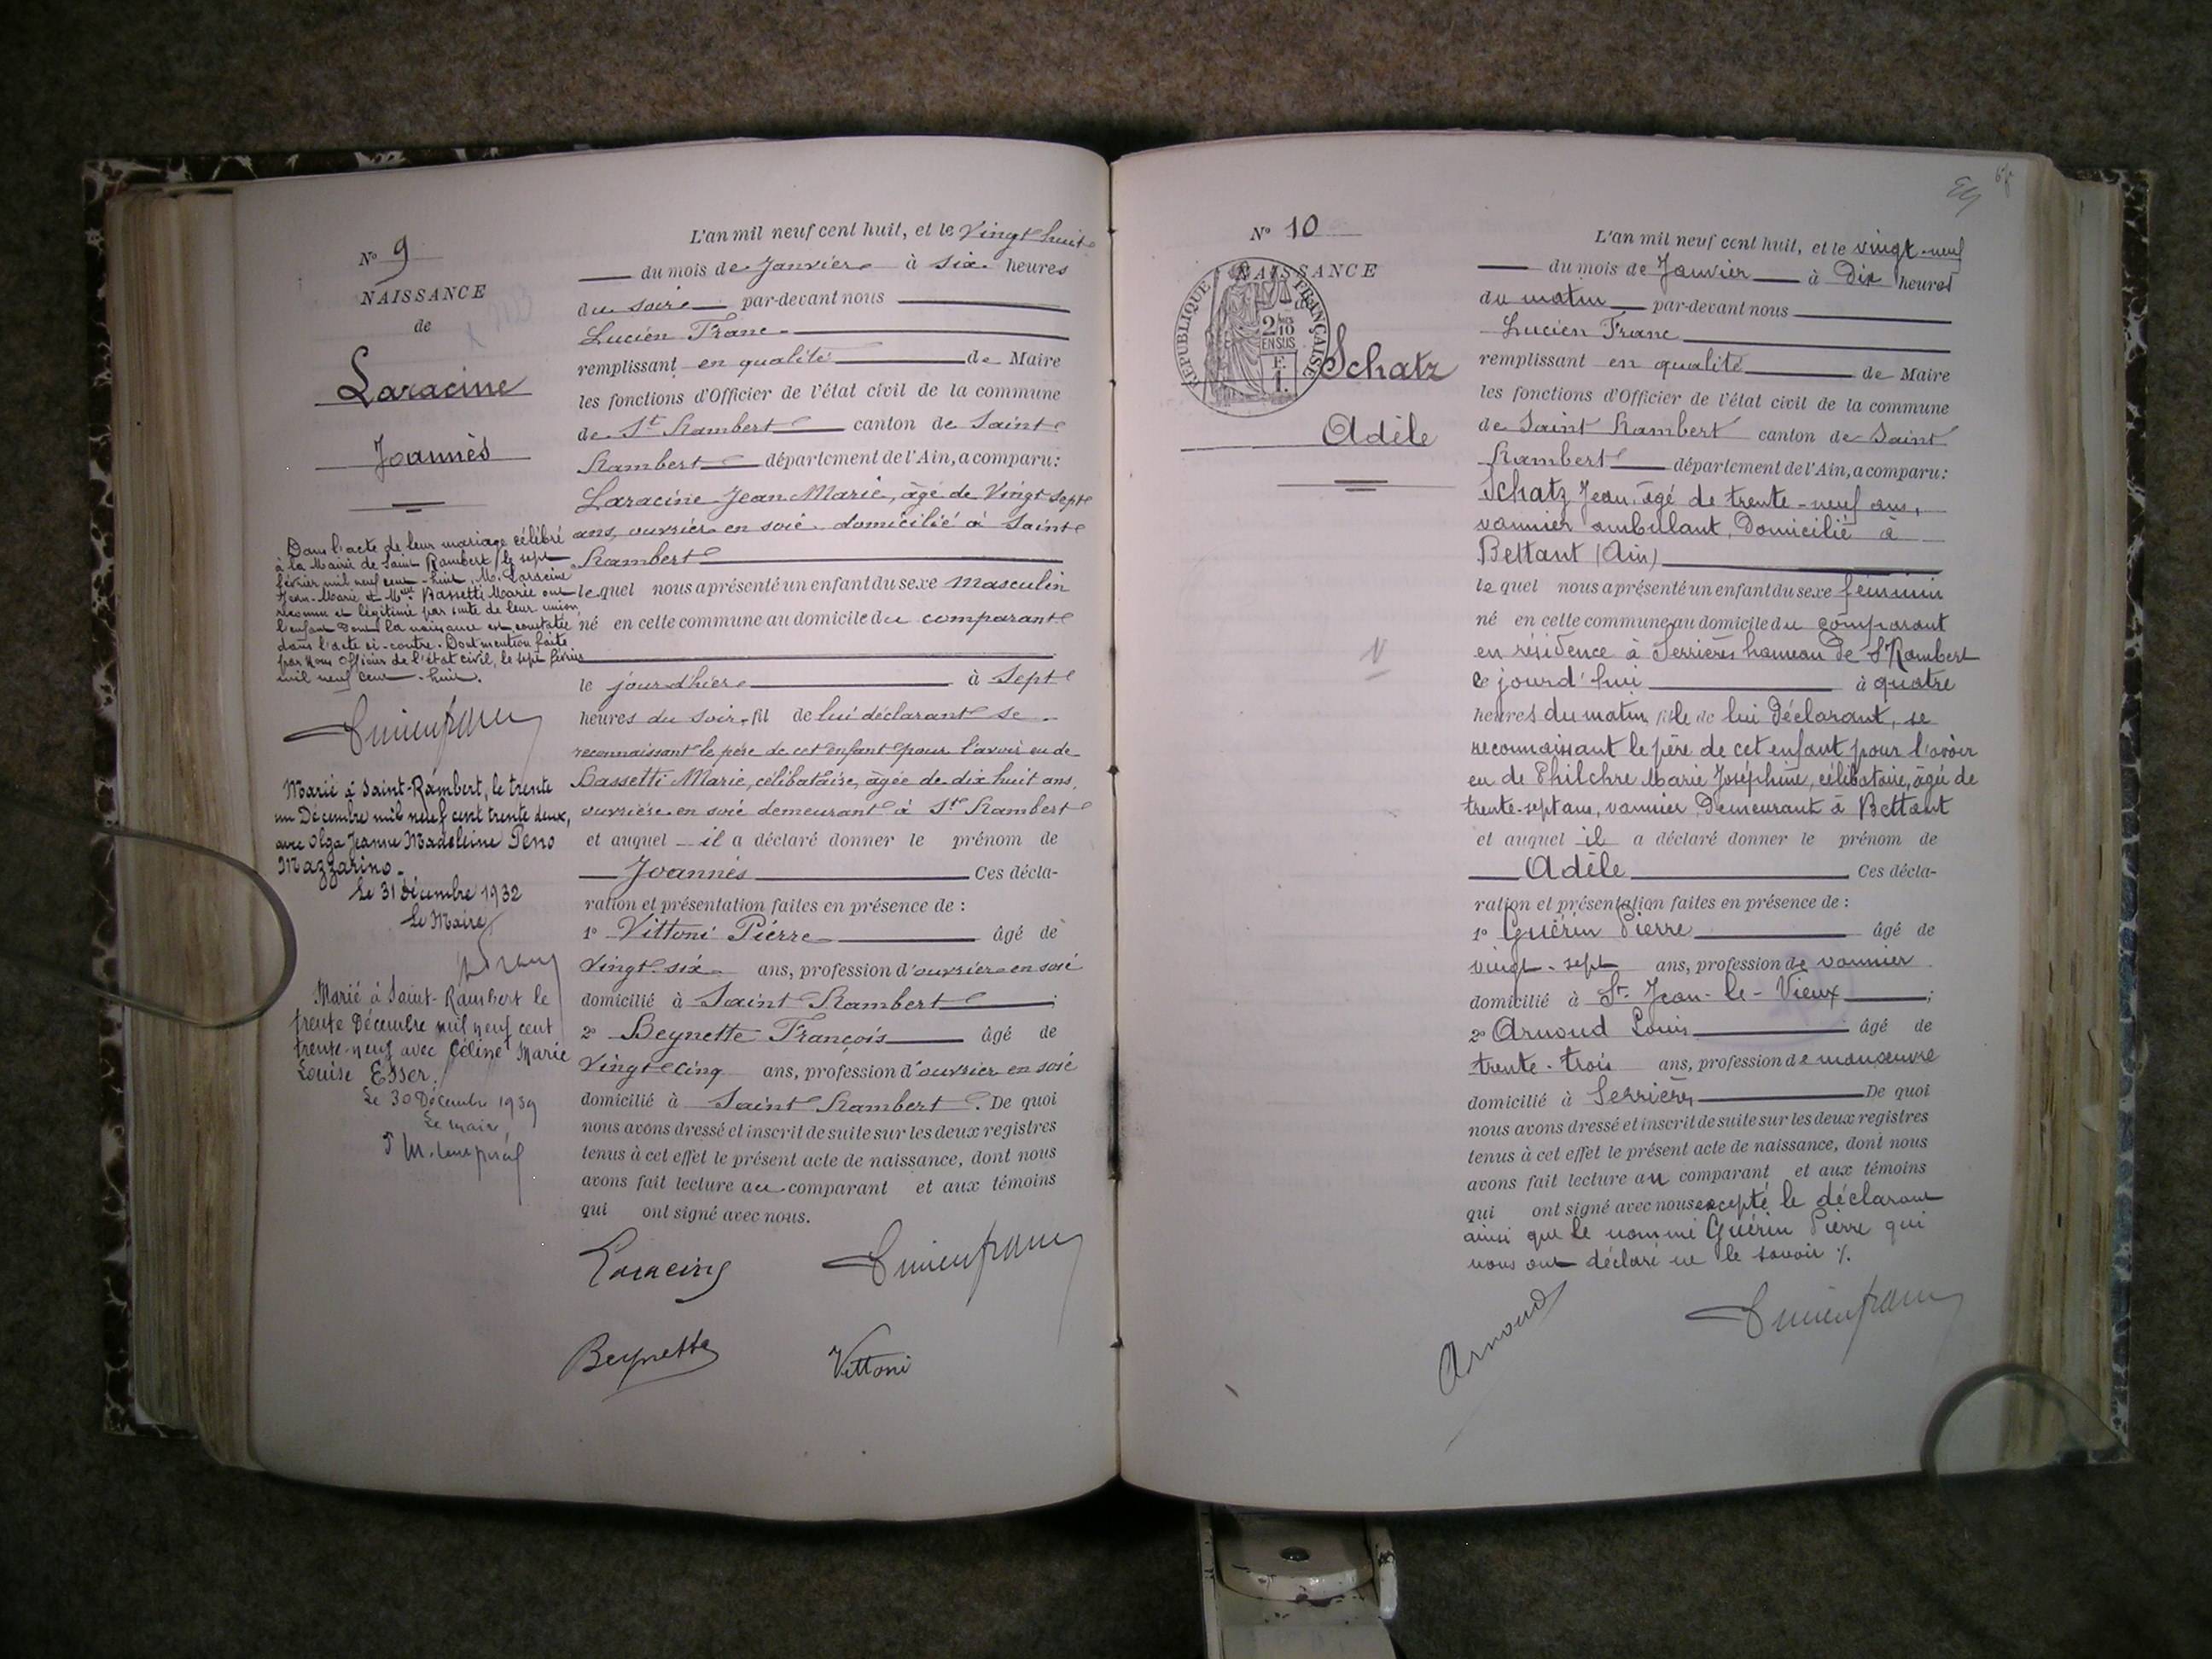 N° 9
NAISSANCE
de
Laracine
Joannès
Dans l'acte de leur mariage célébré
à la Mairie de Saint Rambert, le sept
février mil neuf cent-huit, M. Laracine
Jean-Marie et Mlle Bassetti Marie ont
reconnu et légitimé par suite de leur union,
l'enfant dont la naissance est constatée
dans l'acte ci-contre. Dont mention faite
par nous Officier de l'état civil, le sept février
mil neuf cent-huit.
Lucien Franc
Marié à Saint-Rambert, le trente
un Décembre mil neuf cent trente deux,
avec Olga Jeanne Madeleine Peno
Mazzarino.
Le 31 Décembre 1932
Le Maire
Marié à Saint-Rambert le
trente Décembre mil neuf cent
trente-neuf avec Céline Marie
Louise Esser.
Le 30 Décembre 1939
Le Maire,
L'an mil neuf cent huit, et le Vingt huit
du mois de Janvier à six heures
du soir par-devant nous
Lucien Franc
remplissant en qualité de Maire
les fonctions d'Officier de l'état civil de la commune
de St Rambert canton de Saint
Rambert département de l'Ain, a comparu:
Laracine Jean Marie, âgé de Vingt sept
ans, ouvrier en soie domicilié à Saint
Rambert
lequel nous a présenté un enfant du sexe masculin
né en cette commune au domicile du comparant
le jour d'hier à Sept
heures du soir, fil de lui déclarant se
reconnaissant le père de cet enfant pour l'avoir eu de
Bassetti Marie, célibataire, âgée de dix huit ans,
ouvrière en soie demeurant à St Rambert
et auquel il a déclaré donner le prénom de
Joannès Ces décla-
ration et présentation faites en présence de :
1° Vittoni Pierre âgé de
Vingt six ans, profession d'ouvrier en soie
domicilié à Saint Rambert ;
2° Beynette François âgé de
Vingt cinq ans, profession d'ouvrier en soie
domicilié à Saint Rambert. De quoi
nous avons dressé et inscrit de suite sur les deux registres
tenus à cet effet le présent acte de naissance, dont nous
avons fait lecture au comparant et aux témoins
qui ont signé avec nous.
Laracine Lucien Franc
Beynette Vittoni
N° 10
NAISSANCE
de
RÉPUBLIQUE FRANÇAISE
2/10
EN SUS
Schatz
Adèle
L'an mil neuf cent huit, et le vingt-neuf
du mois de Janvier à Dix heures
du matin par-devant nous
Lucien Franc
remplissant en qualité de Maire
les fonctions d'Officier de l'état civil de la commune
de Saint Rambert canton de Saint
Rambert département de l'Ain, a comparu:
Schatz Jean, âgé de trente-neuf ans,
vannier ambulant, Domicilié à
Bettant (Ain)
lequel nous a présenté un enfant du sexe féminin
né en cette commune au domicile du comparant
en résidence à Serrières hameau de St Rambert
ce jourd'hui à quatre
heures du matin fille de lui Déclarant, se
reconnaissant le père de cet enfant pour l'avoir
eu de Philchre Marie Joséphine, célibataire, âgée de
trente-sept ans, vannier Demeurant à Bettant
et auquel il a déclaré donner le prénom de
Adèle Ces décla-
ration et présentation faites en présence de :
1° Guérin Pierre âgé de
vingt-sept ans, profession de vannier
domicilié à St. Jean-le-Vieux ;
2° Arnoud Louis âgé de
trente-trois ans, profession de manœuvre
domicilié à Serrières De quoi
nous avons dressé et inscrit de suite sur les deux registres
tenus à cet effet le présent acte de naissance, dont nous
avons fait lecture au comparant et aux témoins
qui ont signé avec nous excepté le déclarant
ainsi que le nommé Guérin Pierre qui
nous ont déclaré ne le savoir ⁒.
Arnoud Lucien Franc